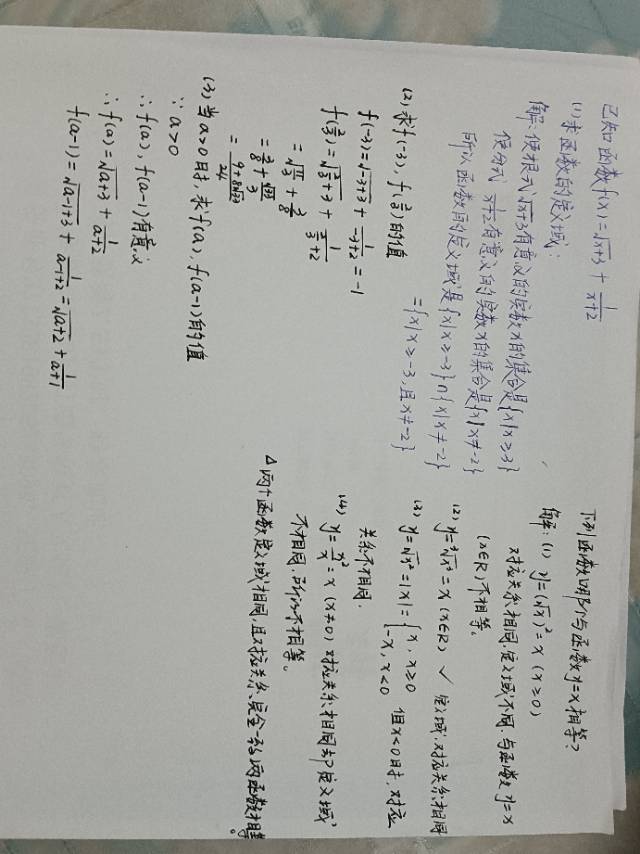 已知函数f(x)=√x+3 + 1/x+2
(1)求函数的定义域;
解:使根式√x+3有意义的实数x的集合是{x|x≥3}
使分式 1/x+2有意义的实数x的集合是{x|x≠-2}
所以函数的定义域是{x|x≥-3}∩{x|x≠-2}
={x|x≥-3,且x≠-2}
(2)求f(-3), f(2/3)的值
f(-3)=√-3+3 + 1/-3+2 =-1
f(2/3)=√2/3+3 + 1/2/3+2
=√11/3 + 3/8
=3/8 + √33/3
=9+8√33/24
(3)当a>0时,求f(a), f(a-1)的值
∵a>0
∴f(a), f(a-1)有意义
∴f(a)=√a+3 + 1/a+2
f(a-1)=√a-1+3 + 1/a-1+2 =√a+2 + 1/a+1
下列函数哪个与函数y=x相等?
解:(1) y=(√x)²=x (x≥0)
对应关系相同,定义域不同.与函数y=x
(x∈R)不相等。
(2) y=³√x³=x (x∈R) ✓ 定义域,对应关系相同
(3) y=√x²=|x|={x, x≥0 -x, x<0 但x<0时,对应
关系不相同.
(4) y=x²/x=x (x≠0) 对应关系相同却定义域
不相同.所以不相等。
△两个函数定义域相同,且对应关系完全一致,两函数相等。